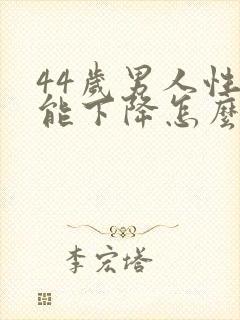 44歲男人性
能下降怎麼
李宏塔